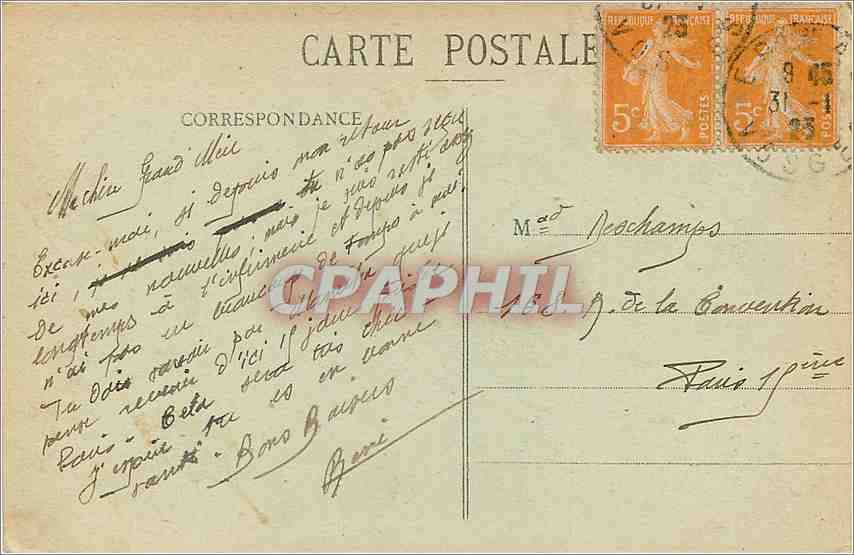 CARTE POSTALE
CORRESPONDANCE
REPUBLIQUE FRANÇAISE
5c
POSTES
REPUBLIQUE FRANÇAISE
5c
POSTES
9 45
31 - 1
23
VOSGES
Ma chère Grand'Mère
Excuse-moi, si depuis mon retour
ici, tu n'as pas reçu
De mes nouvelles, mais je suis resté assez
longtemps à l'infirmerie et depuis je
n'ai pas eu beaucoup de temps à moi.
Tu dois savoir par Maman que je
pense revenir d'ici 15 jours à
Paris. Cela sera très chic
J'espère tu es en bonne
santé. Bons Baisers
René
Mad Deschamps
168 R. de la Convention
Paris 15ème
CPAPHIL